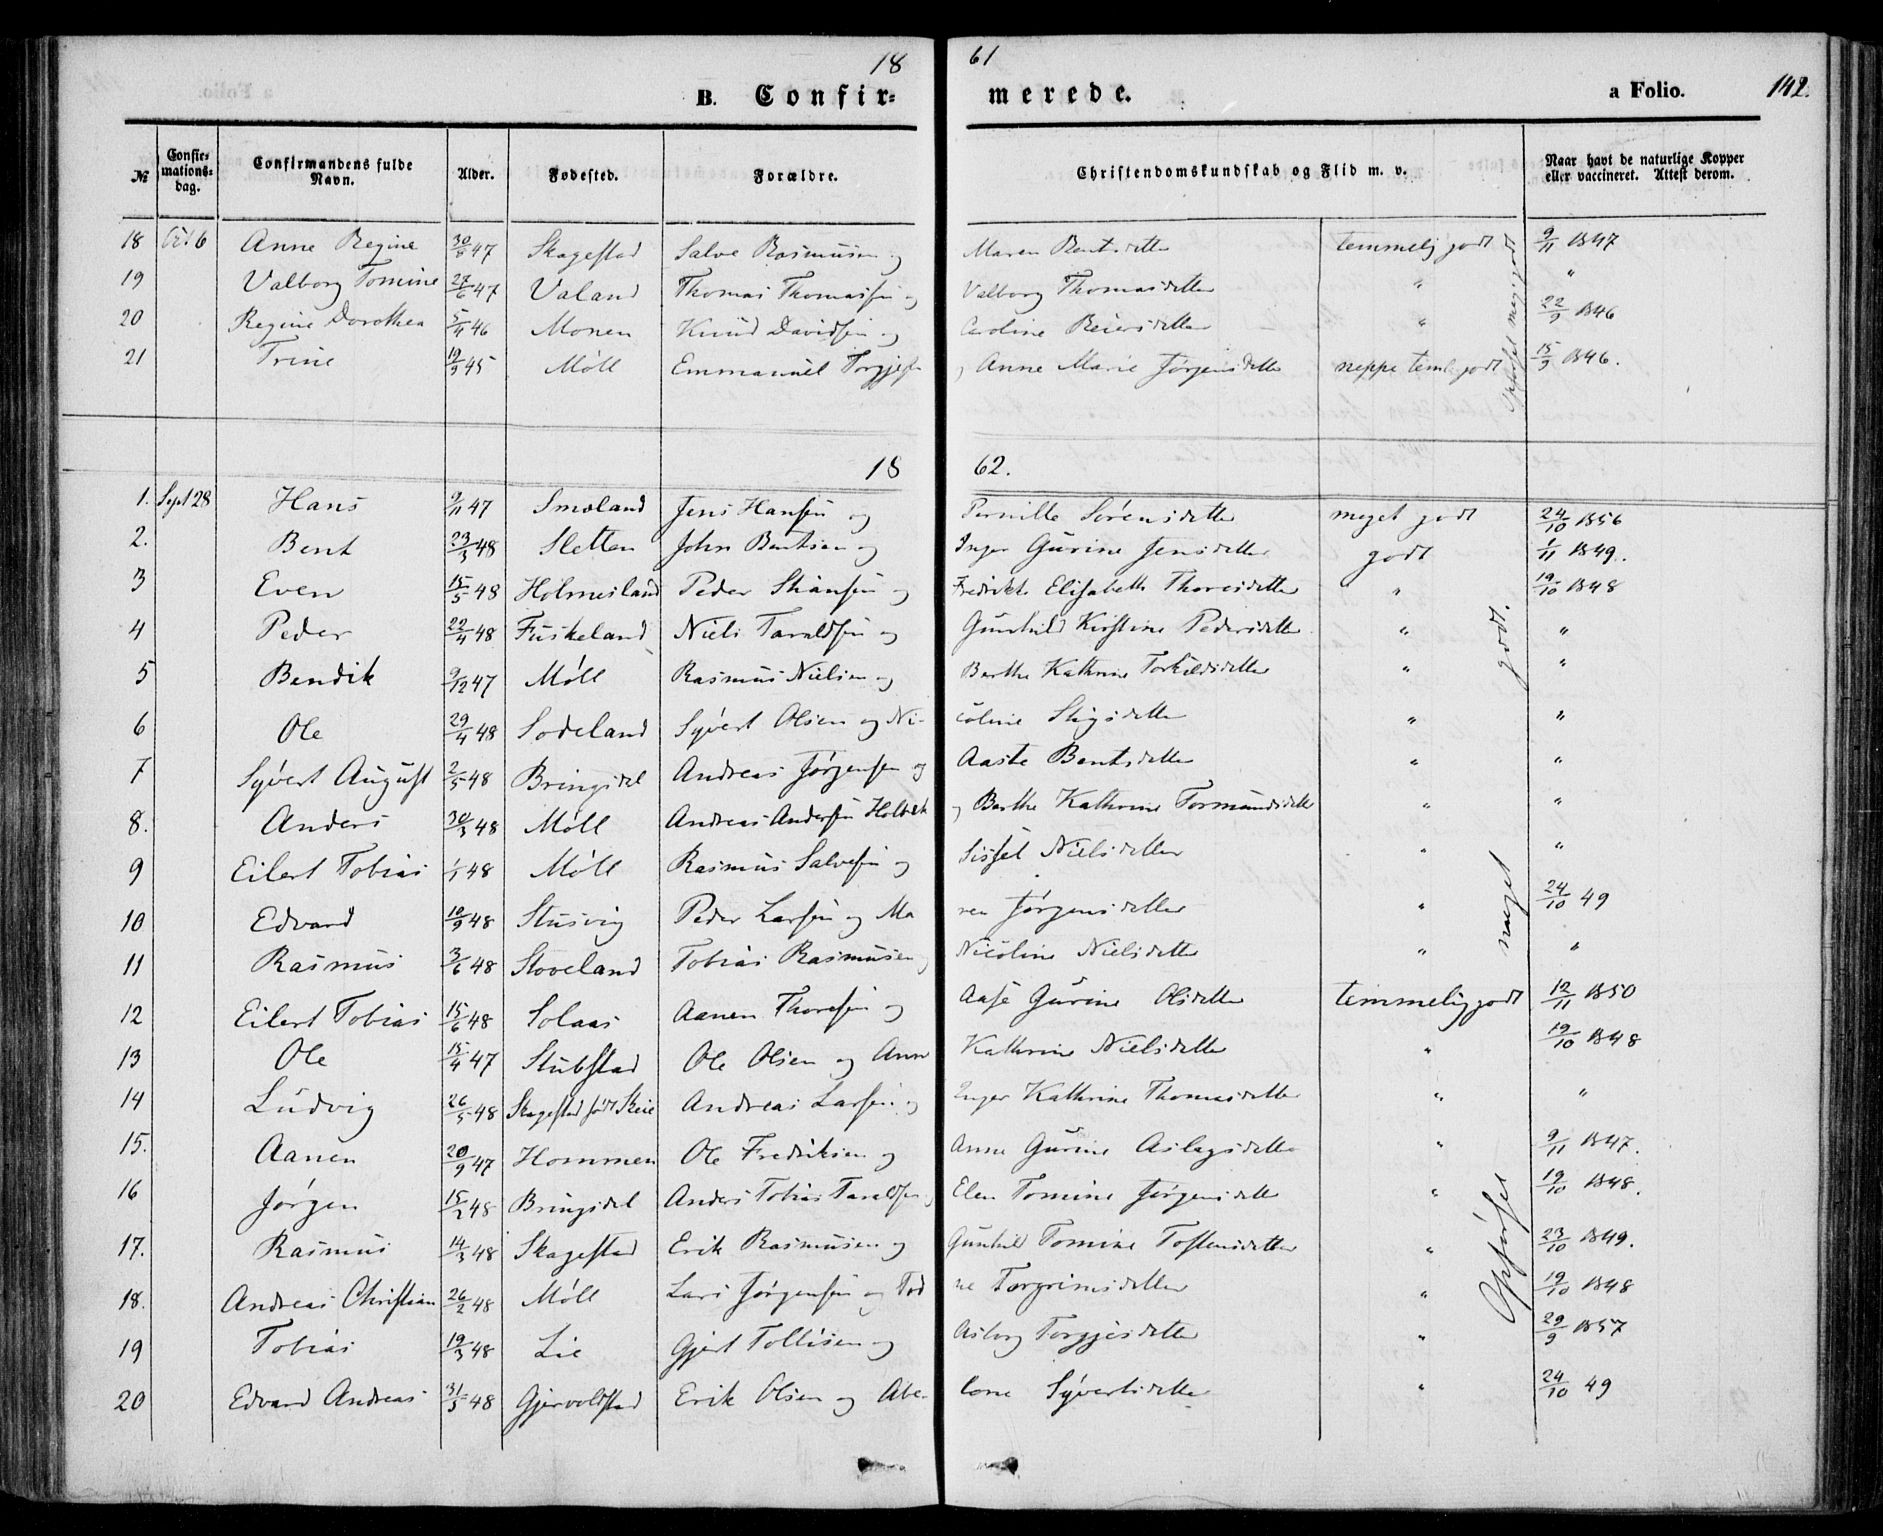 18 61
B. Confir= merede. a Folio. 142.
№ Confir=mations=dag. Confirmandens fulde Navn. Alder. Fødested. Forældre. Christendomskundskab og Flid m. v. Naar havt de naturlige Kopper eller vaccineret. Attest derom.
18 Oct 6 Anne Regine 47 Skagestad Salve Rasmusen og Maren Bentsdatter temmelig godt 9/11 1847
19 Valborg Tomine 27/6 47 Valand Thomas Thomassen og Valborg Thomasdatter " "
20 Regine Dorothea 5/11 46 Monen Knud Davidsen og Caroline Reiersdatter " 22/9 1846
21 Trine 19/9 45 Möll Emmanuel Torgjes , Anne Marie Jørgensdatter neppe teml godt 15/9 1846.
Opførsel meg. godt
18 62.
1. Sept 28 Hans 9/11 47 Smaland Jens Hansen og Pernille Sörensdatter meget godt 24/10 1856
2. Bent 23/3 48 Sletten John Bentsen og Inger Gurine Jensdatter godt 1/11 1849.
3 Even 15/5 48 Holmesland Peder Stiansen og Fredrikke Elisabeth Thoresdatter " 19/10 1848
4 Peder 22/4 48 Fuskeland Niels Taraldsen og Gunhild Kirstine Pedersdatter " "
5 Bendik 9/12 47 Möll Rasmus Nielsen og Berthe Kathrine Torkildsdatter " "
6 Ole 29/4 48 Sodeland Syvert Olsen og Ni- coline Stigsdatter " "
7 Syvert August 2/5 48 Bringsdal Andreas Jørgensen og Aaste Bentsdatter " "
8. Anders 30/3 48 Möll Andreas Andersen Holbek , Berthe Kathrine Tormundsdatter " "
9 Eilert Tobias 48 Möll Rasmus Salvesen og Sissel Nielsdatter " "
10 Edvard 10/9 48 Stusvig Peder Larsen og Ma ren Jørgensdatter " 24/10 49
11 Rasmus 3/6 48 Stoveland Tobias Rasmusen , Nicoline Nielsdatter " "
12 Eilert Tobias 15/6 48 Solaas Aanen Thoresen og Aase Gurine Olsdatter temmelig godt 12/11 1850
13 Ole 15/4 47 Stubstad Ole Olsen og Ann Kathrine Nielsdatter " 19/10 1848
14 Ludvig 26/5 48 Skagestad født Skeie Andreas Larsen og Inger Kathrine Thomasdatter " "
15. Aanen 20/9 47 Hommen Ole Fredriksen og Anne Gurine Aslagsdatter " 9/11 1847.
16 Jørgen 15/2 48 Bringsdal Anders Tobias Taraldsen , Elen Tomine Jørgensdatter " 19/10 1848.
17. Rasmus 14/3 48 Skagestad Erik Rasmusen og Gunhild Tomine Tostensdatter " 23/10 1849.
18. Andreas Christian 26/2 48 Möll Lars Jørgensen og Tod ne Torgrimsdatter " 19/10 1848
19 Tobias 19/3 48 Lie Gjert Tollisen og Asborg Torgjesdatter " 29/9 1857
20 Edvard Andreas 31/5 48 Gjervoldstad Erik Olsen og Abe- lone Syvertsdatter " 24/10 49
Opførsel meget godt.